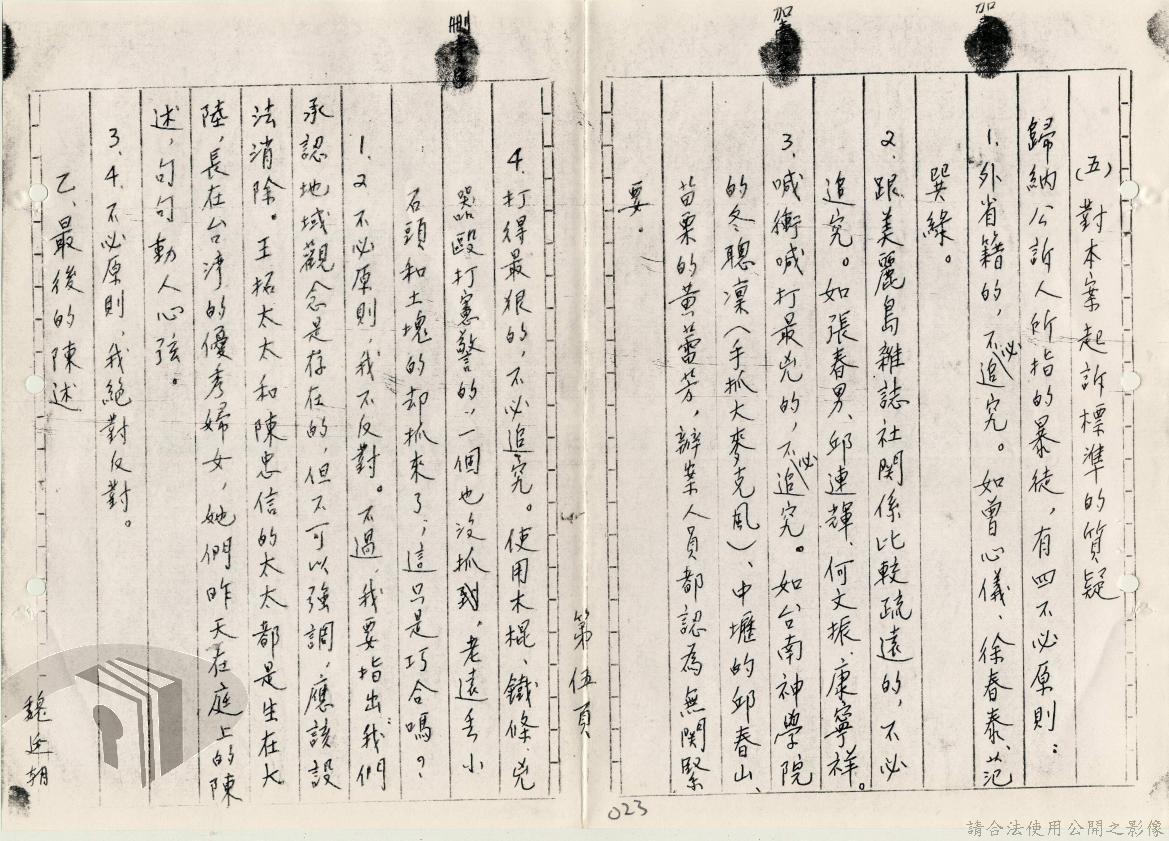 (五)對本案起訴標準的質疑
歸納公訴人所指的暴徒,有四不必原則:
1.外省籍的,不必追究。如曾心儀、徐春泰、范
巽綠。
2.跟美麗島雜誌社関係比較疏遠的,不必
追究。如張春男、邱連輝、何文振、康寧祥。
3.喊衝喊打最兇的,不必追究。如台南神學院
的冬聰凜(手抓大麥克風)、中壢的邱春山、
苗栗的黄蕾芳,辦案人員都認為無関緊
要。
第伍頁
4.打得最狠的,不必追究。使用木棍、鐵條、兇
器毆打憲警的,一個也沒抓到,老遠丢小
石頭和土塊的却抓來了;這只是巧合嗎?
1.2不必原則,我不反對。不過,我要指出:我們
承認地域觀念是存在的,但不可以強調,應該設
法消除。王拓太太和陳忠信的太太都是生在大
陸,長在台湾的優秀婦女,她們昨天在庭上的陳
述,句句動人心弦。
3.4.不必原則,我絕對反對。
乙、最後的陳述
魏廷朝
023
請合法使用公開之影像